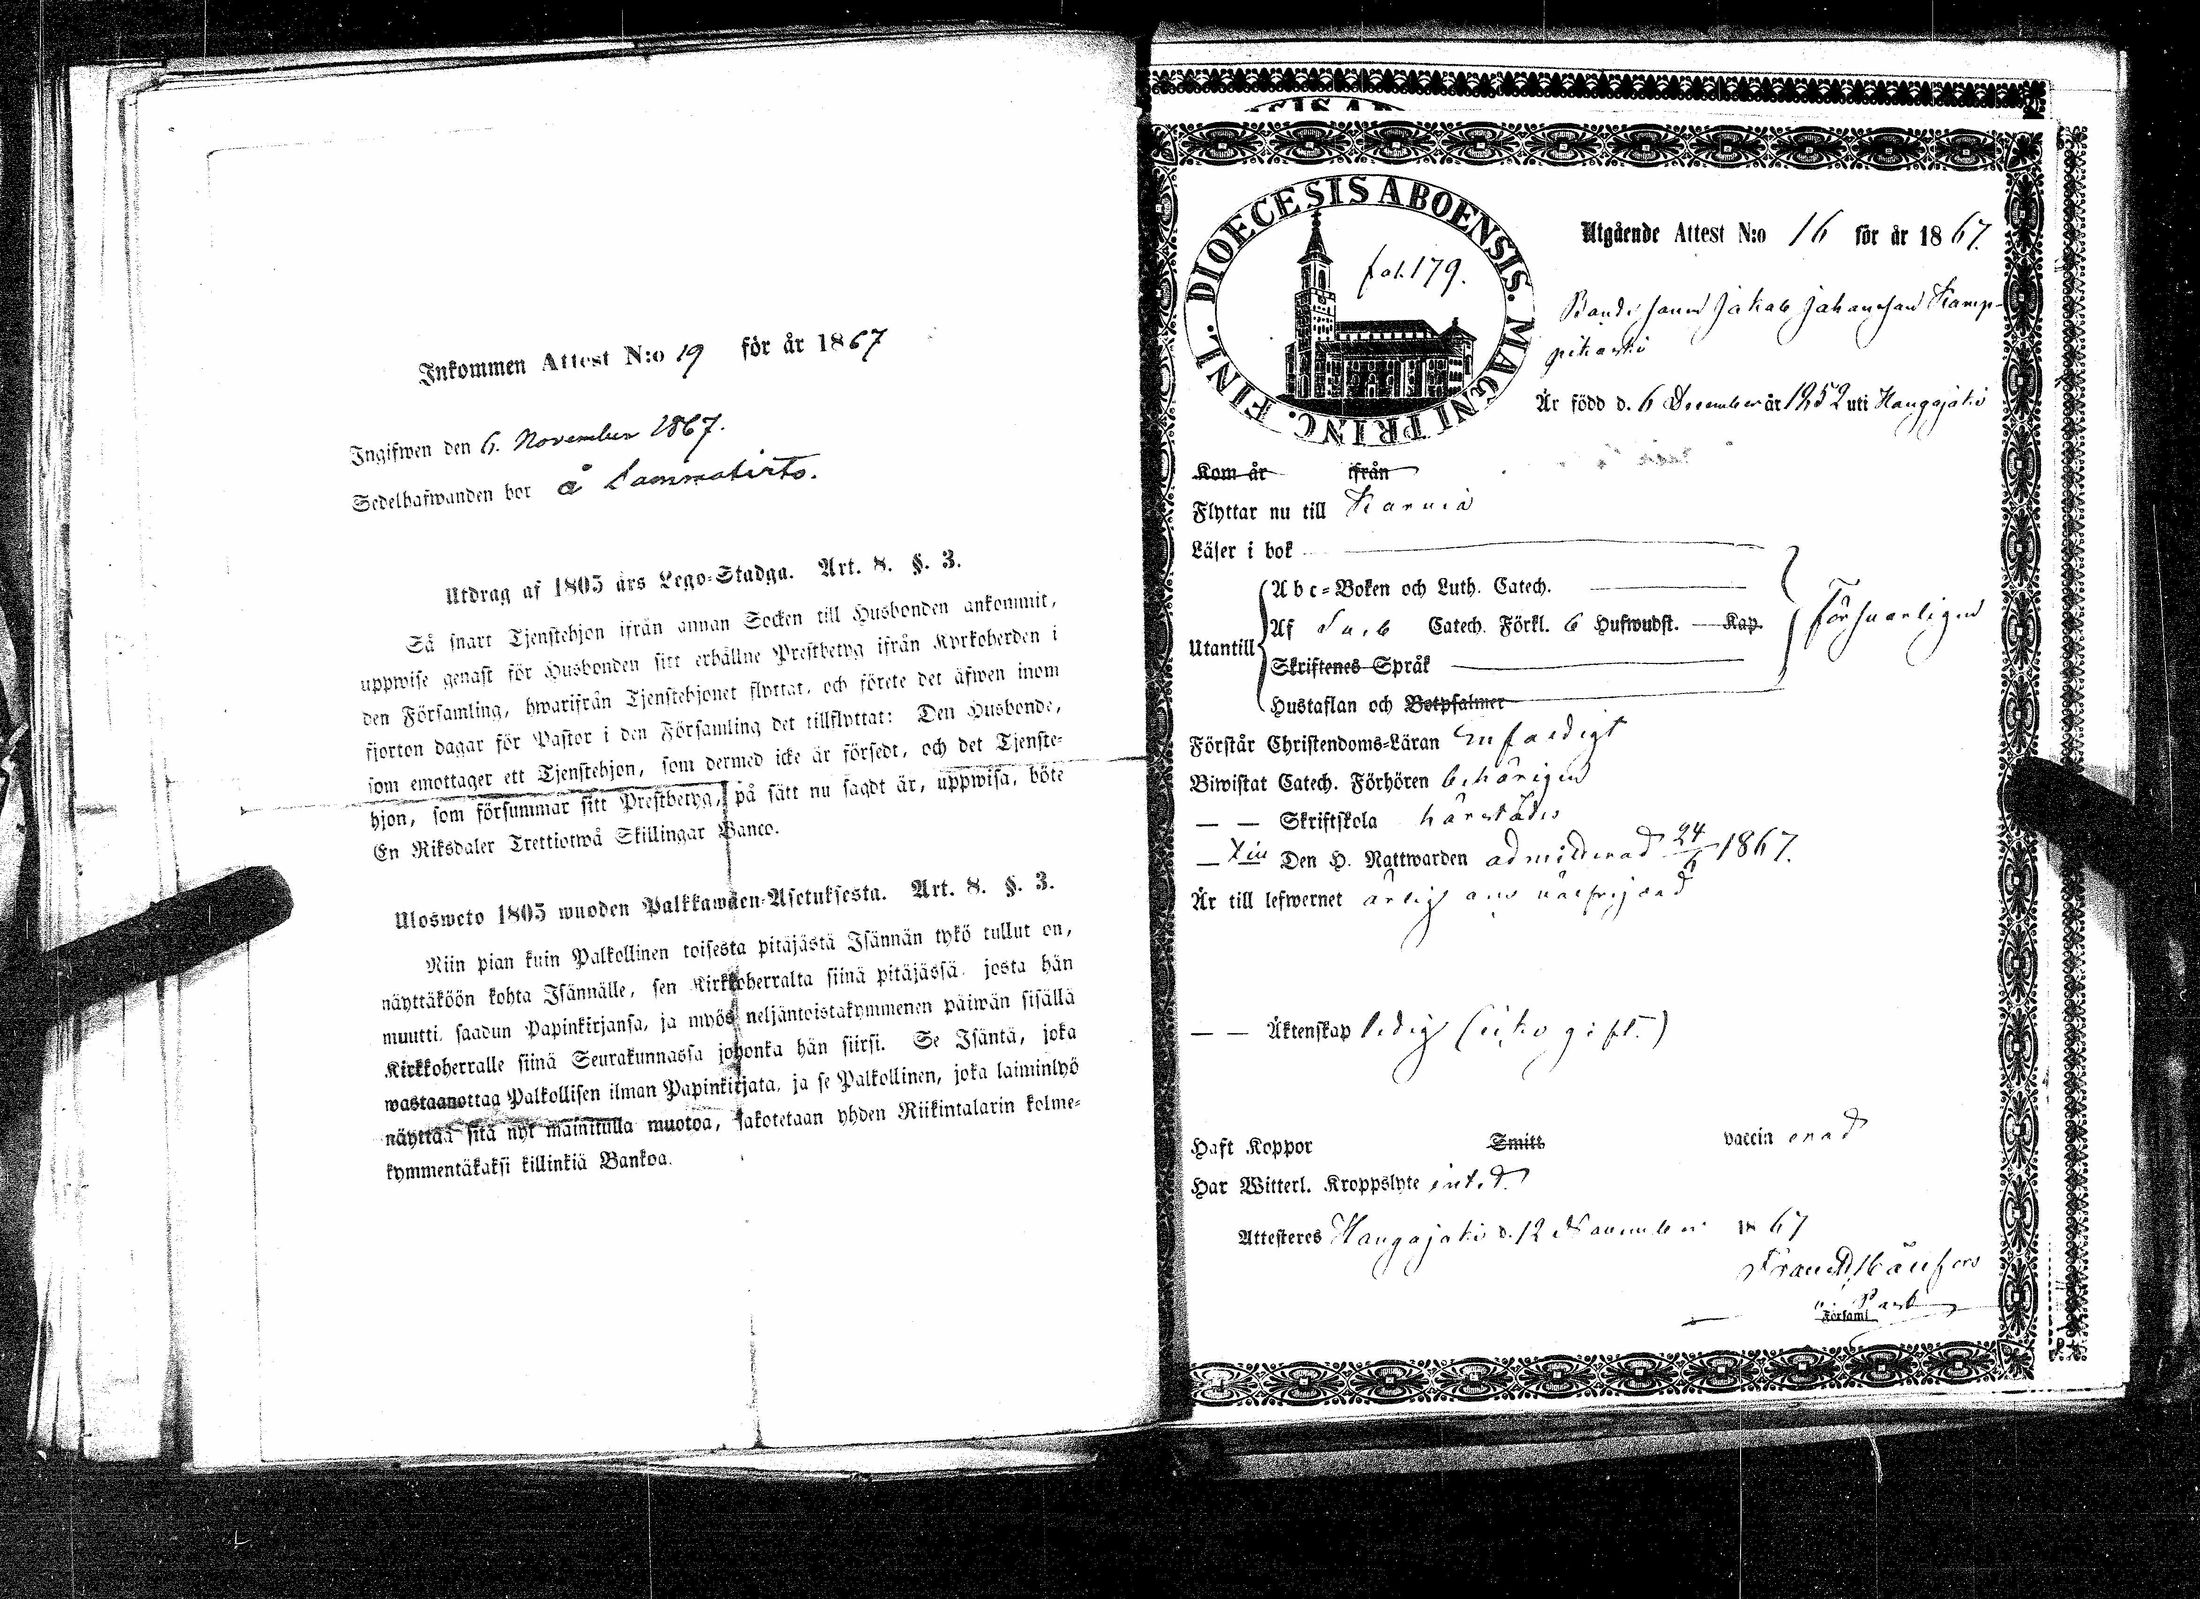 Inkommen Attest N:o 19 för år 1867
Ingifwen den 6. November 1867.
Sedelhafwanden bor å Lammatirto.
Utdrag af 1805 års Lego-Stadga. Art. 8. §. 3.
Så snart Tjenstehjon ifrån annan Socken till Husbonden ankommit,
uppwise genast för Husbonden sitt erhållne Prestbetyg ifrån Kyrkoherden i
den Församling, hwarifrån Tjenstehjonet flyttat, och förete det äfwen inom
fjorton dagar för Pastor i den Församling det tillflyttat: Den Husbonde,
som emottager ett Tjenstehjon, som dermed icke är försedt, och det Tjenste-
hjon, som försummar sitt Prestbetyg, på sätt nu sagdt är, uppwisa, böte
En Riksdaler Trettiotwå Skillingar Banco.
Ulosweto 1805 wuoden Palkkawäen-Asetuksesta. Art. 8. §. 3.
Niin pian kuin Palkollinen toisesta pitäjästä Isännän tykö tullut on,
näyttäköön kohta Isännälle, sen Kirkkoherralta siinä pitäjässä, josta hän
muutti, saadun Papinkirjansa, ja myös neljäntoistakymmenen päiwän sisällä
Kirkkoherralle siinä Seurakunnassa johonka hän siirsi. Se Isäntä, joka
wastaanottaa Palkollisen ilman Papinkirjata, ja se Palkollinen, joka laiminlyö
näyttää sitä nyt mainitulla muotoa, sakotetaan yhden Riikintalarin kolme-
kymmentäkaksi killinkiä Bankoa.
DIOECESIS ABOENSIS. MAGNI PRINC. FINL.
fol. 179.
Utgående Attest N:o 16 för år 1867.
Bondesonen Jakob Johansson Kamp-
pikoski
Är född d. 6 December år 1852 uti Hongojoki
Kom år ifrån
Flyttar nu till Karvia
Läser i bok
Utantill
Abc-Boken och Luth. Catech.
Af Catech. Förkl. 6 Hufwudst. Kap.
Försvarligen
Skriftenes Språk
Hustaflan och Botpsalmer
Förstår Christendoms-Läran Enfaldigt
Biwistat Catech. Förhören behörigen
— — Skriftskola härstädes
— Den H. Nattwarden admitterad 24/6 1867.
Är till lefwernet ärlig och oförwitlig
— — Äktenskap ledig (icke gift.)
Haft Koppor Smitt vaccinerad
Har Witterl. Kroppslyte intet.
Attesteres Hongojoki d. 12 November 1867
Församl